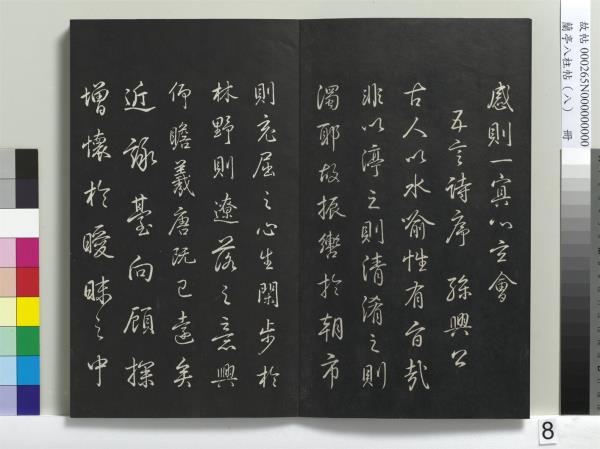 感則一寘心空會
五言詩序 孫興公
古人以水喻性有旨哉
非以渟之則清淆之則
濁耶故振轡於朝市
則充屈之心生閑步於
林野則遼落之意興
仰瞻羲唐阮已遠矣
近詠臺向顧探
增懷於曖昧之中
故帖000265N000000000
蘭亭八柱帖(八) 冊
8